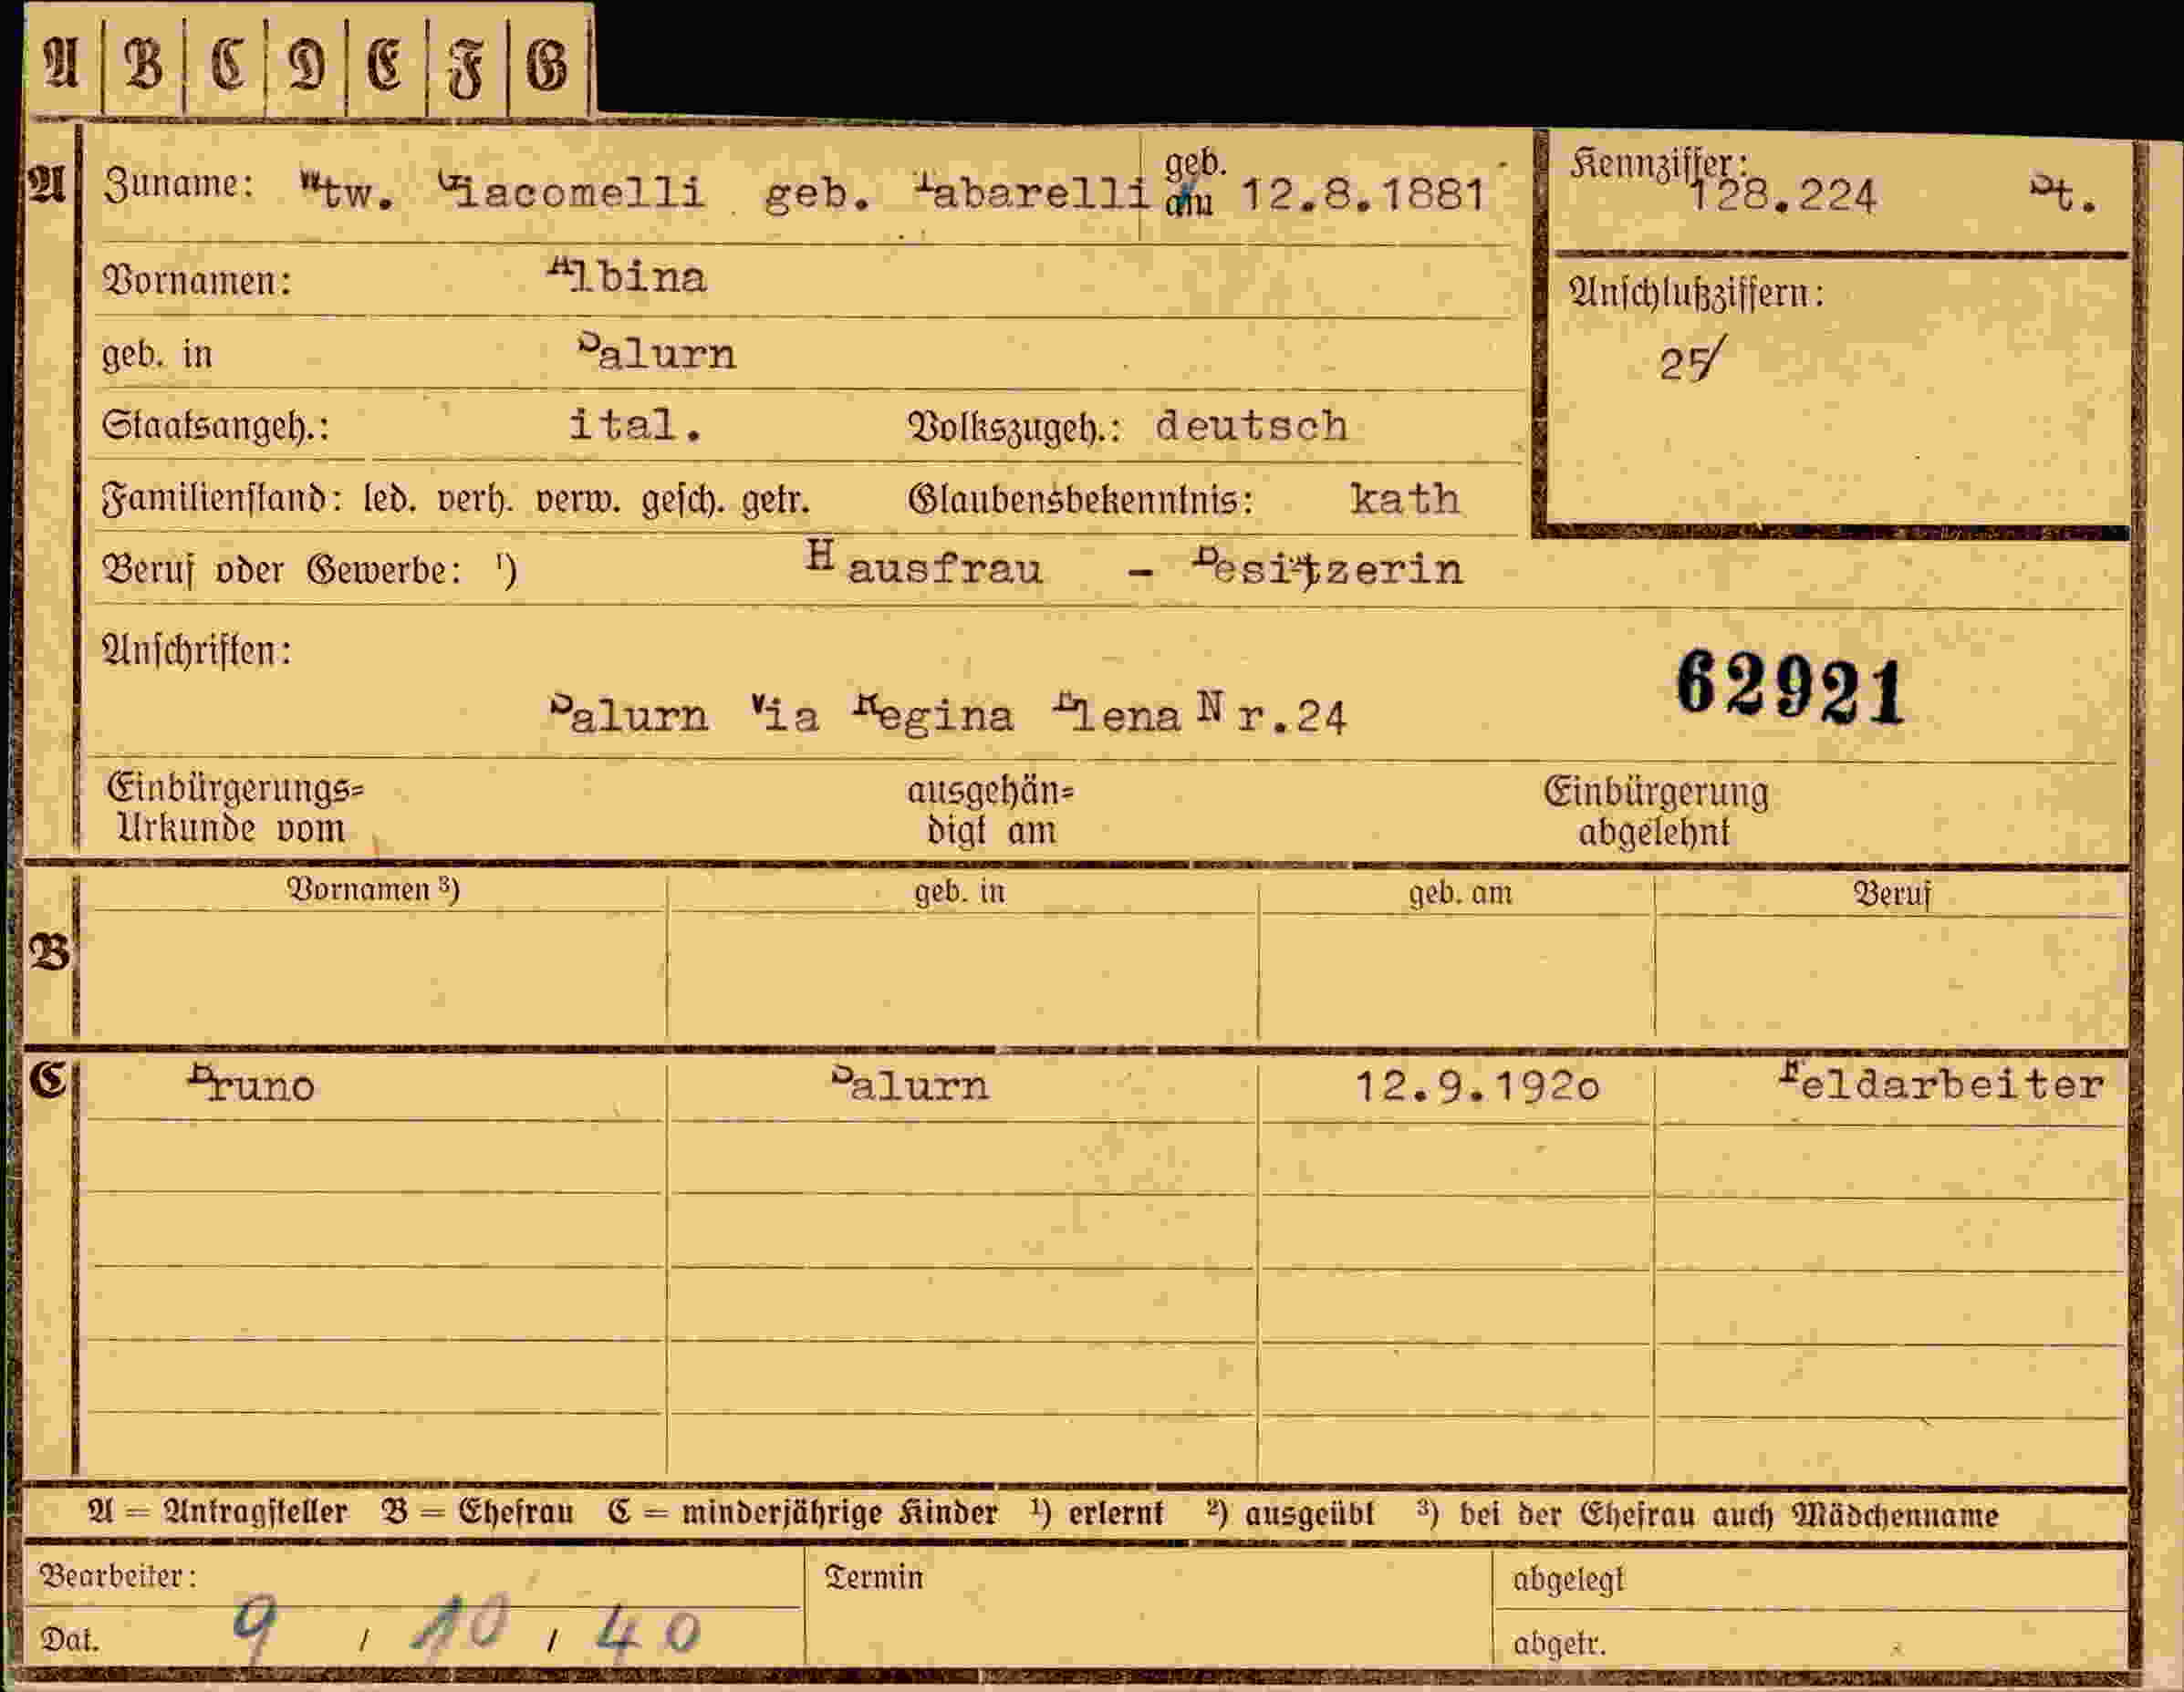 A B C D E F G
A Zuname: Wtw. Giacomelli geb. Tabarelli geb. am 12.8.1881
Kennziffer: 128.224 St.
Vornamen: Albina
Anschlußziffern:
25/
geb. in Salurn
Staatsangeh.: ital. Volkszugeh.: deutsch
Familienstand: led. verh. verw. gesch. getr. Glaubensbekenntnis: kath
Beruf oder Gewerbe: ¹) Hausfrau - Besitzerin
Anschriften:
62921
Salurn Via Regina Elena Nr.24
Einbürgerungs= ausgehän= Einbürgerung
Urkunde vom digt am abgelehnt
Vornamen ³) geb. in geb. am Beruf
B
C Bruno Salurn 12.9.192o Feldarbeiter
A = Antragsteller B = Ehefrau C = minderjährige Kinder ¹) erlernt ²) ausgeübt ³) bei der Ehefrau auch Mädchenname
Bearbeiter: Termin abgelegt
Dat. 9 / 10 / 40 abgetr.